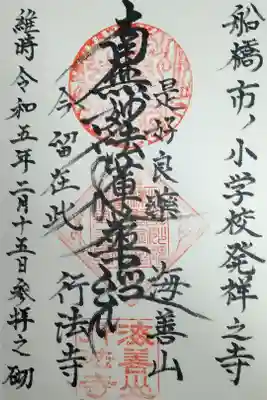 船橋市ノ小学校発祥之寺
是好良薬 海善山
南無妙法蓮華経
今留在此 行法寺
維時令和五年二月十五日参拝之砌
海善山